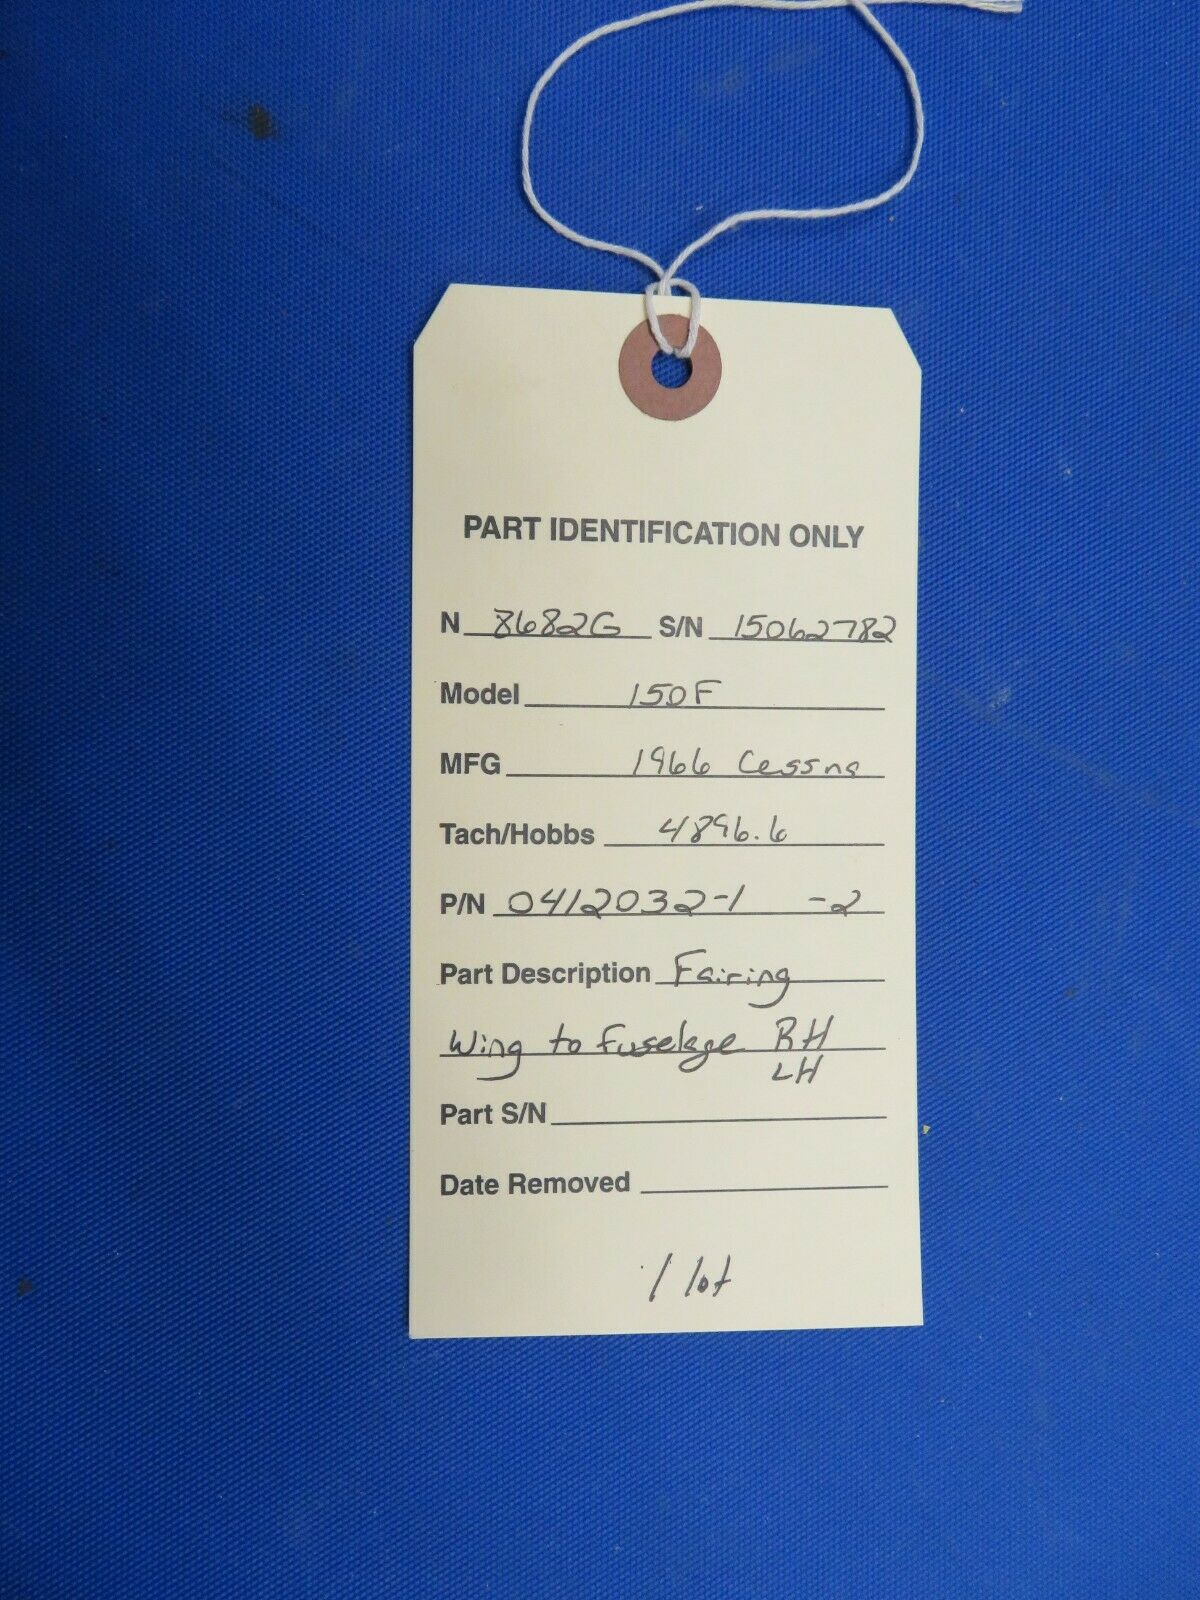 PART IDENTIFICATION ONLY
N 8682G S/N 15062782
Model 150F
MFG 1966 Cessna
Tach/Hobbs 4896.6
P/N 0412032-1 -2
Part Description Fairing
Wing to Fuselage RH
LH
Part S/N
Date Removed
1 lot